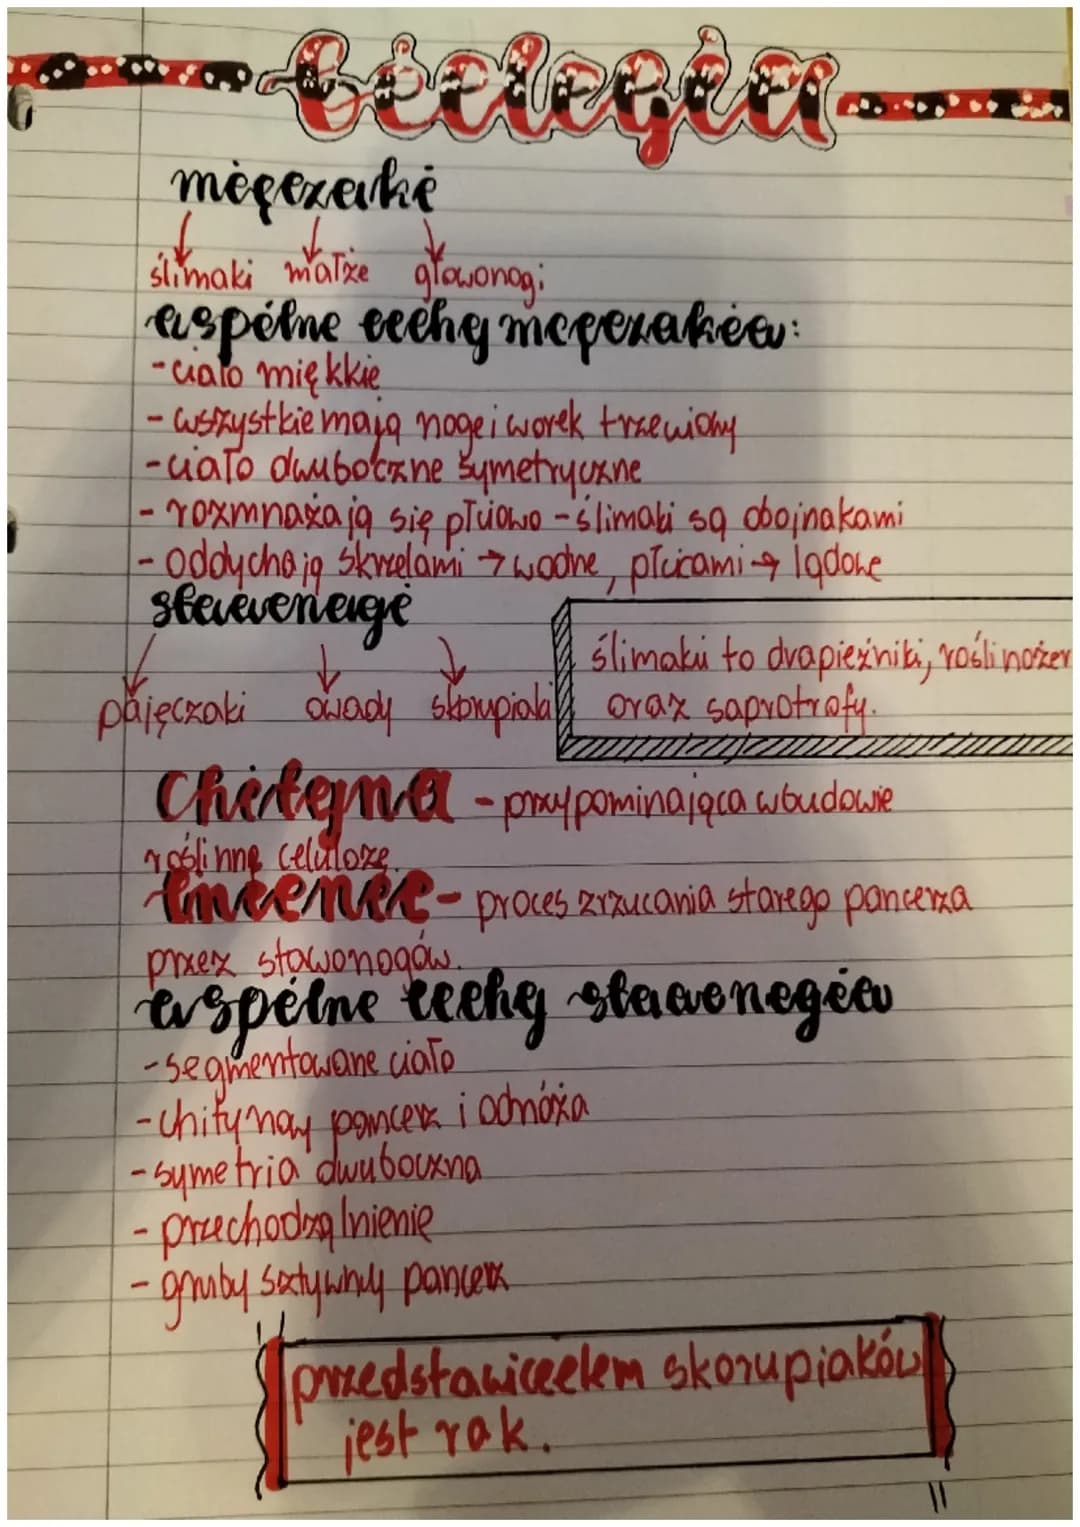 biologia
mięczaki
ślimaki małże głowonogi
wspólne cechy mięczaków:
- ciało miękkie
- wszystkie mają nogę i worek trzewiowy
- ciało dwuboczne symetryczne
- rozmnażają się płciowo - ślimaki są obojnakami
- oddychają skrzelami → wodne, płucami → lądowe
stawonogi
pajęczaki owady skorupiaki
ślimaki to drapieżniki, roślinożer
oraz saprotrofy.
Chityna - przypominająca w budowie
roślinną celulozę.
linienie - proces zrzucania starego pancerza
przez stawonogów.
wspólne cechy stawonogów
- segmentowane ciało
- chitynowy pancerz i odnóża
- symetria dwuboczna
- przechodzą linienie
- gruby sztywny pancerz
przedstawicielem skorupiaków
jest rak.